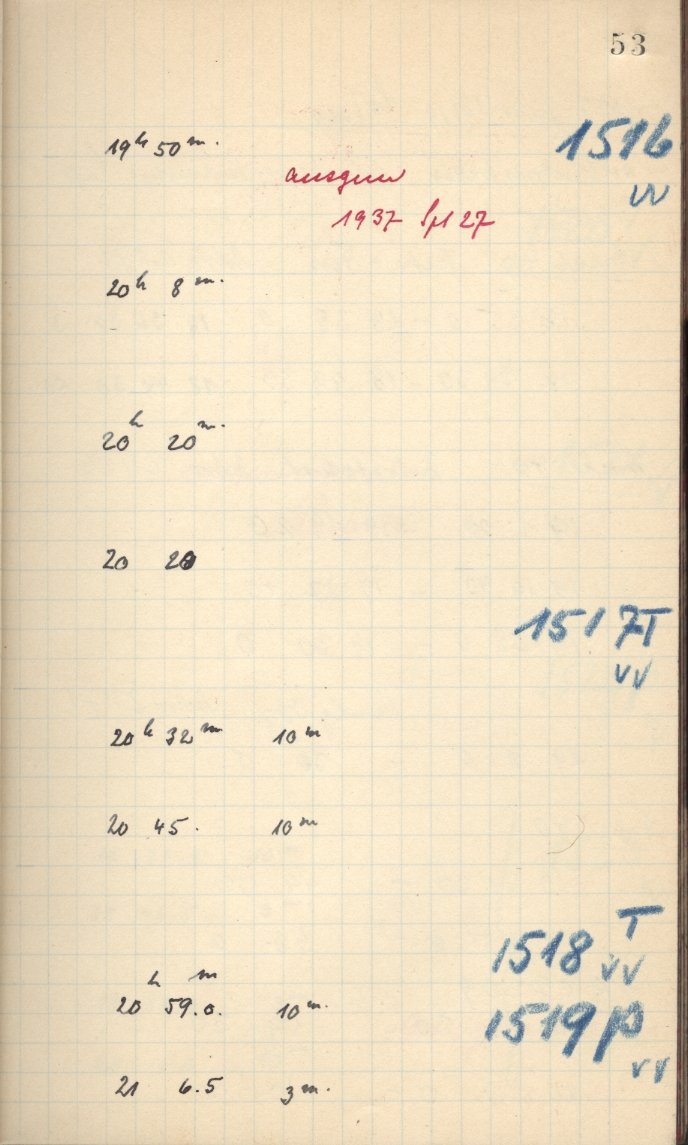 53
19h 50m. 1516
vv
1937 Spt 27
20h 8m.
20h 20m.
20 20
1517T
vv
20h 32m 10m
20 45. 10m
T
1518 vv
20h 59.0m 10m.
1519 p
vv
21 6.5 3m.